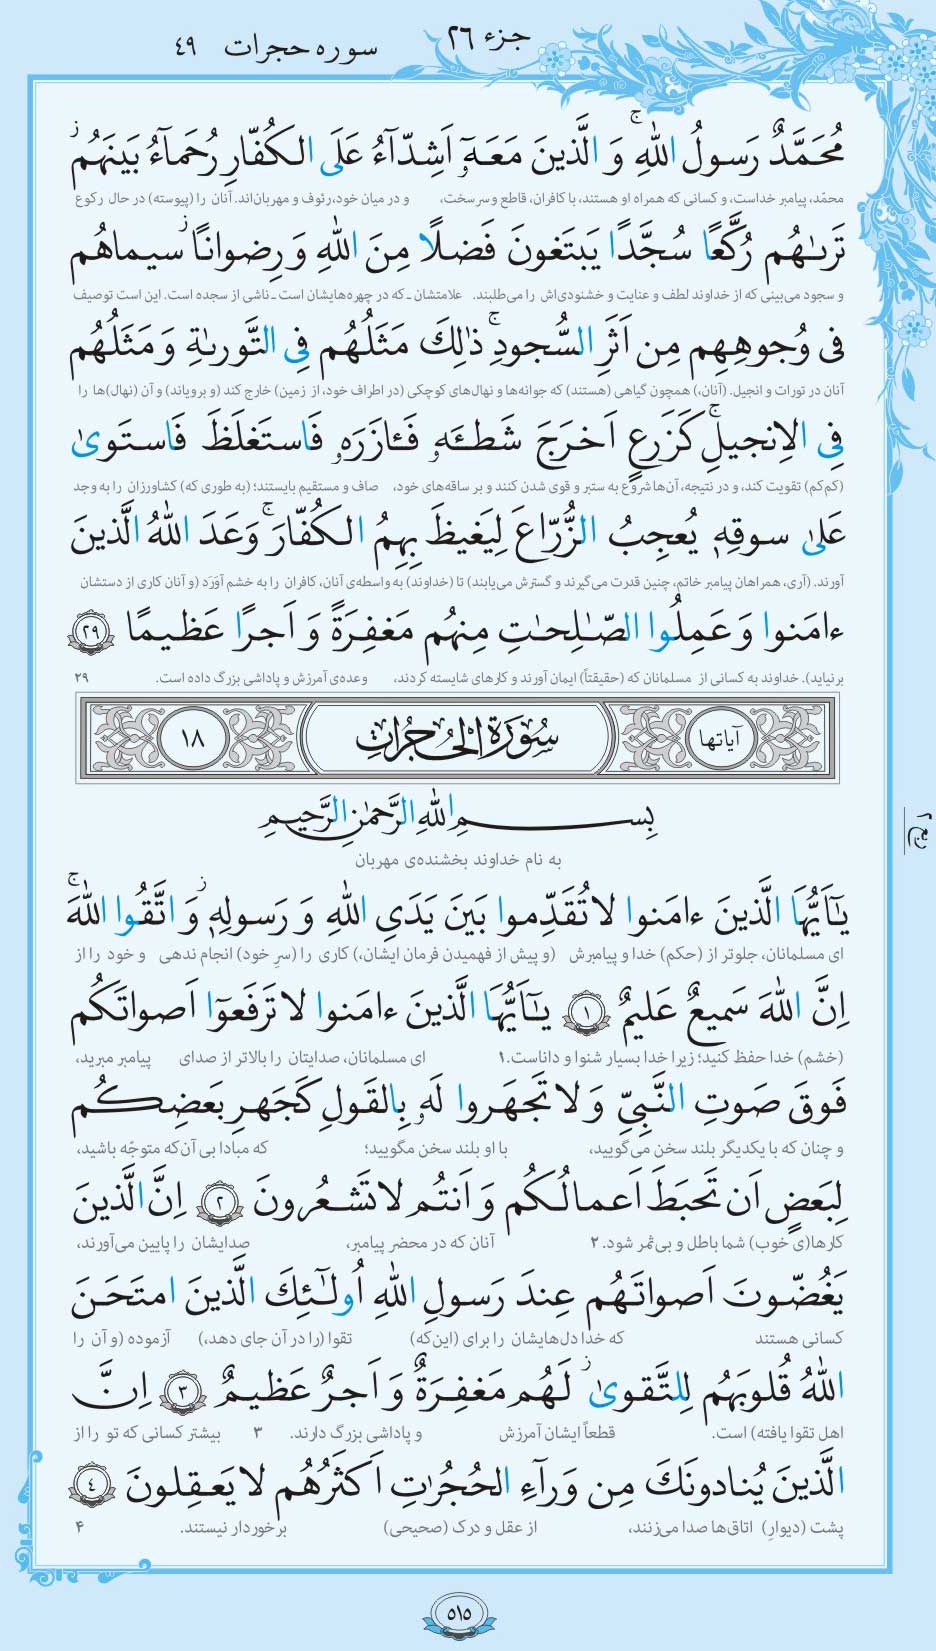 جزء ۲۶
سوره حجرات ۴۹
مُحَمَّدٌ رَسولُ اللهِ ۚ وَ الَّذینَ مَعَهٗ اَشِدّآءُ عَلَی الکُفّارِ رُحَمآءُ بَینَهُم ۖ
محمّد، پیامبر خداست، و کسانی که همراه او هستند، با کافران، قاطع و سرسخت، و در میان خود، رئوف و مهربان‌اند. آنان را (پیوسته) در حال رکوع
تَرىٰهُم رُکَّعًا سُجَّدًا یَبتَغونَ فَضلًا مِنَ اللهِ وَ رِضوانًا ۖ سیماهُم
و سجود می‌بینی که از خداوند لطف و عنایت و خشنودی‌اش را می‌طلبند. علامتشان ـ که در چهره‌هایشان است ـ ناشی از سجده است. این است توصیف
فی وُجوهِهِم مِن اَثَرِ السُّجودِ ۚ ذٰلِکَ مَثَلُهُم فِی التَّورىٰةِ وَ مَثَلُهُم
آنان در تورات و انجیل. (آنان،) همچون گیاهی (هستند) که جوانه‌ها و نهال‌های کوچکی (در اطراف خود، از زمین) خارج کند (و برویاند) و آن (نهال)ها را
فِی الاِنجیلِ ۚ کَزَرعٍ اَخرَجَ شَطـٔهٗ فَـٔازَرَهٗ فَاستَغلَظَ فَاستَوىٰ
(کم‌کم) تقویت کند، و در نتیجه، آن‌ها شروع به ستبر و قوی شدن کنند و بر ساقه‌های خود، صاف و مستقیم بایستند؛ (به طوری که) کشاورزان را به وجد
عَلىٰ سوقِهٖ یُعجِبُ الزُّرّاعَ لِیَغیظَ بِهِمُ الکُفّارَ ۚ وَعَدَ اللهُ الَّذینَ
آورند. (آری، همراهان پیامبر خاتم، چنین قدرت می‌گیرند و گسترش می‌یابند) تا (خداوند) به واسطه‌ی آنان، کافران را به خشم آوَرَد (و آنان کاری از دستشان
ءامَنوا وَ عَمِلُوا الصّٰلِحٰتِ مِنهُم مَغفِرَةً وَ اَجرًا عَظیمًا ۲۹
برنیاید). خداوند به کسانی از مسلمانان که (حقیقتاً) ایمان آورند و کارهای شایسته کردند، وعده‌ی آمرزش و پاداشی بزرگ داده است. ۲۹
آیاتها سُورَةُ الحُجُراتِ ۱۸
بِسمِ اللهِ الرَّحمٰنِ الرَّحیمِ
به نام خداوند بخشنده‌ی مهربان
یٰٓاَیُّهَا الَّذینَ ءامَنوا لاتُقَدِّموا بَینَ یَدَیِ اللهِ وَ رَسولِهٖ ۖ وَ اتَّقُوا اللهَ ۚ
ای مسلمانان، جلوتر از (حکم) خدا و پیامبرش (و پیش از فهمیدن فرمان ایشان،) کاری را (سرِ خود) انجام ندهی و خود را از
اِنَّ اللهَ سَمیعٌ عَلیمٌ ۱ یٰٓاَیُّهَا الَّذینَ ءامَنوا لاتَرفَعوٓا اَصواتَکُم
(خشم) خدا حفظ کنید؛ زیرا خدا بسیار شنوا و داناست. ۱ ای مسلمانان، صدایتان را بالاتر از صدای پیامبر مبرید،
فَوقَ صَوتِ النَّبِیِّ وَ لاتَجهَروا لَهٗ بِالقَولِ کَجَهرِ بَعضِکُم
و چنان که با یکدیگر بلند سخن می‌گویید، با او بلند سخن مگویید؛ که مبادا بی آن‌که متوجّه باشید،
لِبَعضٍ اَن تَحبَطَ اَعمالُکُم وَ اَنتُم لاتَشعُرونَ ۲ اِنَّ الَّذینَ
کارها(ی خوب) شما باطل و بی‌ثمر شود. ۲ آنان که در محضر پیامبر، صدایشان را پایین می‌آورند،
یَغُضّونَ اَصواتَهُم عِندَ رَسولِ اللهِ اُولٰٓئِکَ الَّذینَ امتَحَنَ
کسانی هستند که خدا دل‌هایشان را برای (این‌که) تقوا (را در آن جای دهد،) آزموده (و آن را
اللهُ قُلوبَهُم لِلتَّقوىٰ ۖ لَهُم مَغفِرَةٌ وَ اَجرٌ عَظیمٌ ۳ اِنَّ
اهل تقوا یافته) است. قطعاً ایشان آمرزش و پاداشی بزرگ دارند. ۳ بیشتر کسانی که تو را از
الَّذینَ یُنادونَکَ مِن وَرآءِ الحُجُرٰتِ اَکثَرُهُم لایَعقِلونَ ۴
پشت (دیوارِ) اتاق‌ها صدا می‌زنند، از عقل و درک (صحیحی) برخوردار نیستند. ۴
ربع ۲
۵۱۵